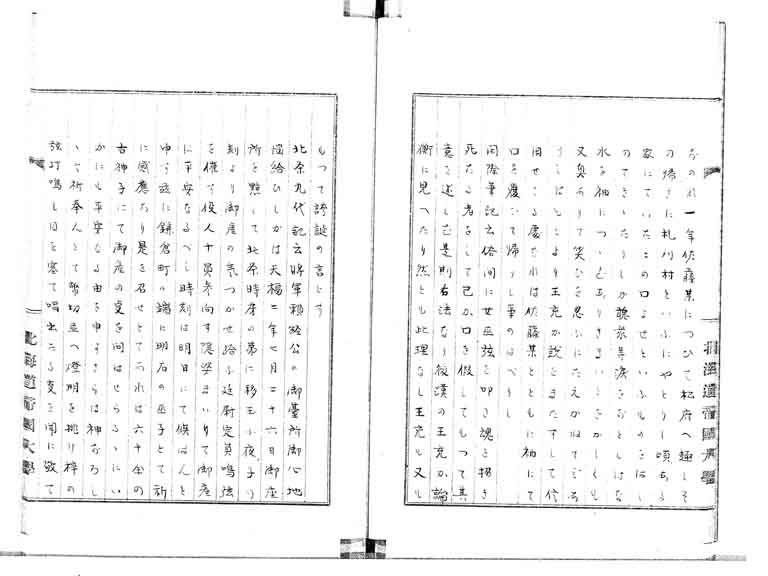 おのれ一年佐藤某につひて松府へ趣しそ
の帰さに札川村といふにやとりし頃ある
家にていたこの口よせといふものをはし
のてきゝたりしか聴衆等涙をおとしはな
水を袖につゝむありさまいとをかしくも
又興ありて笑ひを忍ふにたえかねて
うしはもとより王充か説をまたすして信
旧せさる處なれは佐藤某とともに袖にて
口を覆ふて帰りし事のはへりし
閑際筆記云俗間に女巫弦を叩き魂を招き
死たる者をして己か口を假してもつて其
意を述しむ是則右法なり後漢の王充か論
衡に見へたり然とも此理なし王充も又
もつて誇誕の言とす
北条九代記云将軍頼経公の御臺所御心地
悩給ひしかは天福二年七月二十六日御産
所を點して北条時房の第に移玉ふ夜子の
刻より御産の気つかせ給ふ廷尉定員鳴弦
を催す役人十員参向す隠婆まいりて御産
に平安なるへし時刻は明日にて候はんと
申す茲に鎌倉町の端に明石の巫子とて祈
に感應あり是を召せとてあれは六十余の
古神子にて御産の変を問はせらるゝにい
かにも平安なる由を申すさらは神おろし
して祈奉人とて
弦打鳴し目を塞て唱出たる変を聞に敬て
北海道帝國大學
北海道帝國大學